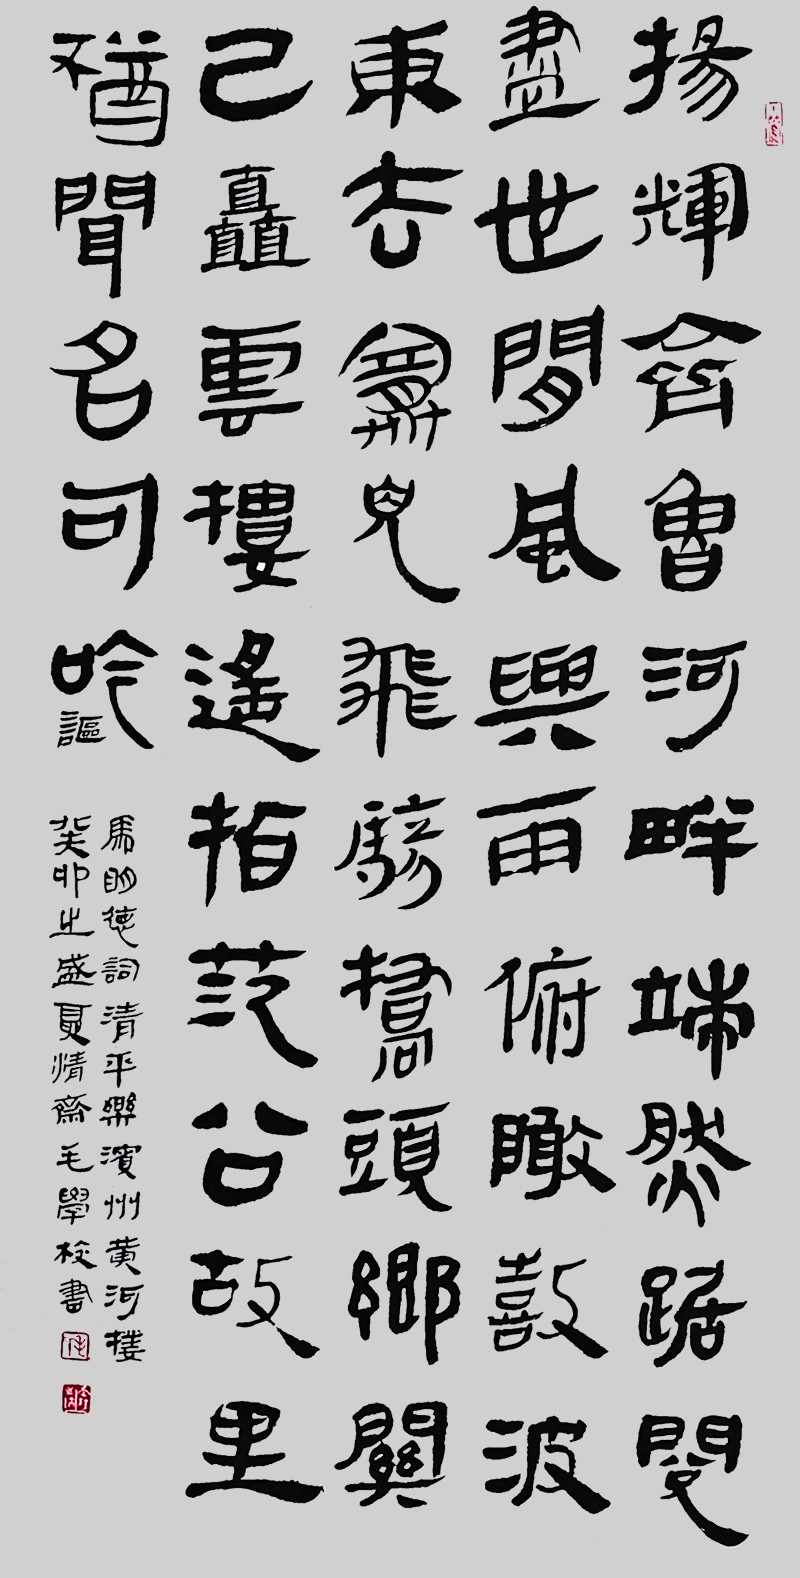 揚輝齊魯河畔端然踞閱
盡世間風與雨俯瞰鼓波
東去兒飛騎橋頭鄉關
已矗雲樓遙拍范公故里
猶聞名句吟謳
馬明德詞清平樂濱州黃河樓
癸卯之盛夏情齋毛學校書